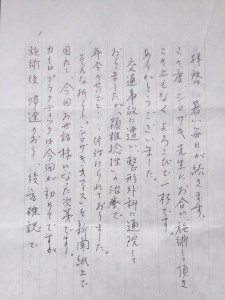 拝啓 暑い毎日が続きます。
この度シマザキ先生にお会い、施術を頂き
この上もなくよろこびで一杯です。
ありがとうございました。
交通事故に遭い、整形外科に通院して
おりましたが、"頸椎症"の治療で
年令のせいで… 片付けられておりました。
そんな折り、シマザキ・オフィスを新聞紙上で
目にし、今回お世話様になった次第です。
カイロプラクティックは今回が初めてですが
施術後、帰途のおり 後方確認で